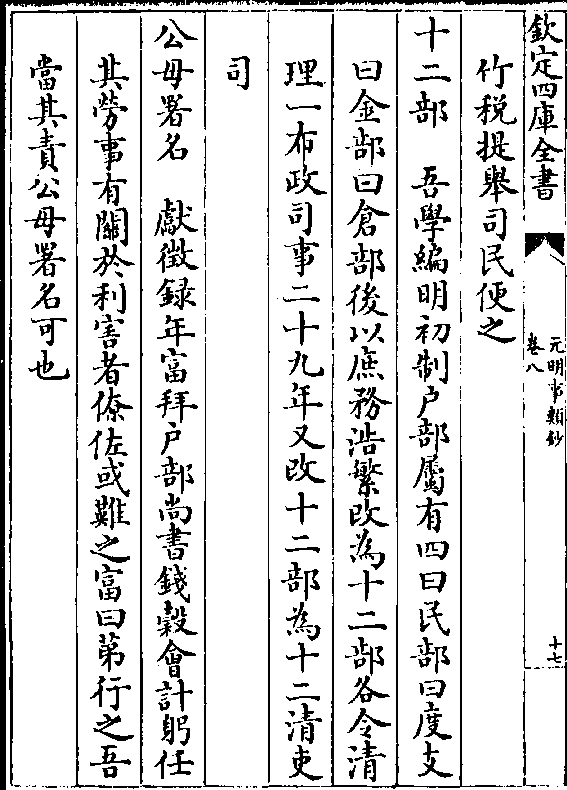 欽定四庫全書
元明事類鈔
卷八
十七
竹稅提舉司民便之
十二部　吾學編明初制户部屬有四曰民部曰度支
曰金部曰倉部後以庶務浩繁改為十二部各令清
理一布政司事二十九年又改十二部為十二清吏
司
公毋署名　獻徵録年富拜户部尚書錢穀會計躬任
其勞事有關於利害者僚佐或難之富曰第行之吾
當其責公毋署名可也